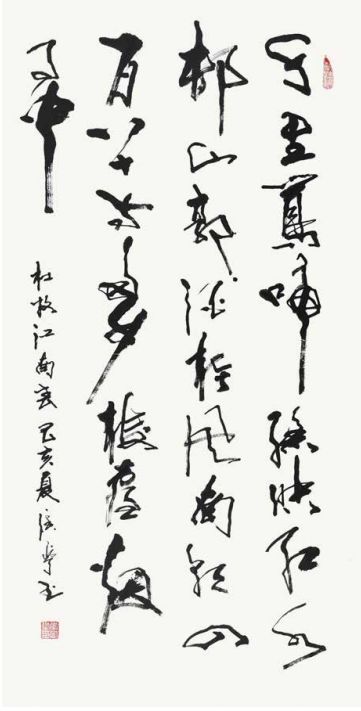 千里鶯啼綠映紅水
邨山郭酒旗風南朝四
百八十寺多少樓臺烟
雨中
杜牧江南春 己亥夏 书